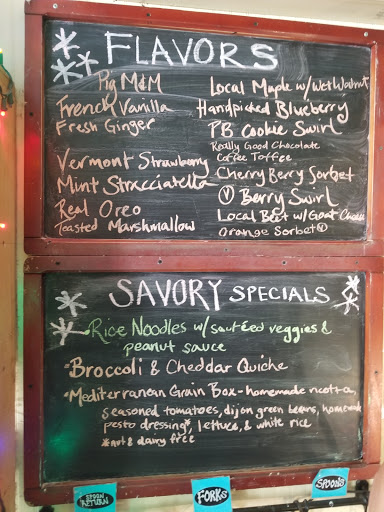 FLAVORS
Pig M&M
French Vanilla
Fresh Ginger
Vermont Strawberry
Mint Stracciatella
Real Oreo
Toasted Marshmallow
Local Maple w/ Wet Walnut
Handpicked Blueberry
PB Cookie Swirl
Really Good Chocolate
Coffee Toffee
Cherry Berry Sorbet
Ⓥ Berry Swirl
Local Beet w/ Goat Cheese
Orange Sorbet Ⓥ
SAVORY SPECIALS
Rice Noodles w/ sautéed veggies &
peanut sauce
Broccoli & Cheddar Quiche
Mediterranean Grain Box - homemade ricotta,
seasoned tomatoes, dijon green beans, homemade
pesto dressing*, lettuce, & white rice
*nut & dairy free
SPOON RETURN
FORKS
SPOONS